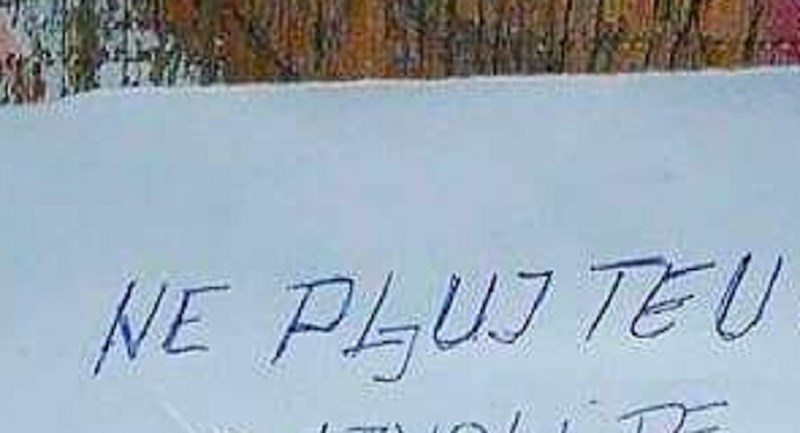 NE PLJUJTE U